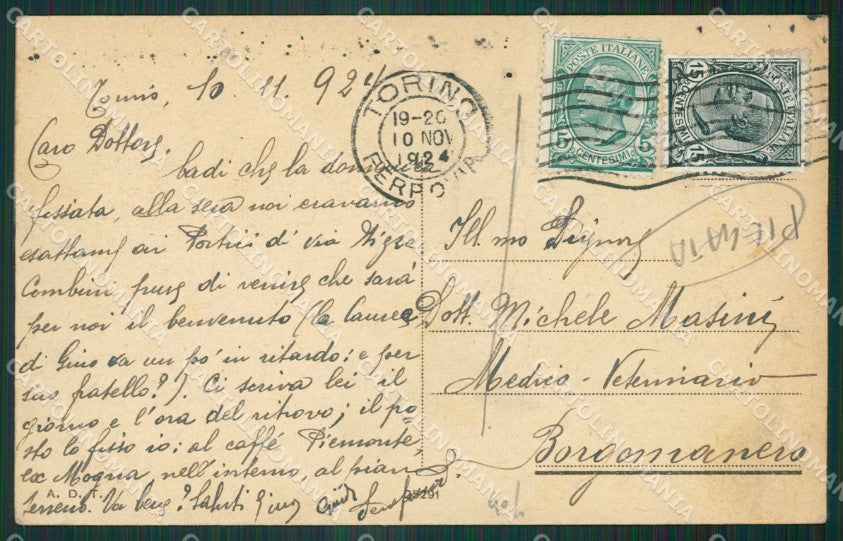 Torino, 10.11.924
Caro Dottore,
badi che la domenica
fissata, alla sera noi eravamo
ai Portici di via Nizza
Combini pure di venire che sarà
per noi il benvenuto (la laurea
di Gino va un po' in ritardo: e per
suo fratello?). Ci scriva lei il
giorno e l'ora del ritrovo; il po-
sto lo fisso io: al caffè Piemonte,
ex Mogna nell'interno, al pian
terreno. Va bene? Saluti
TORINO
19-20
10 NOV
1924
FERROVIA
POSTE ITALIANE
5 5
CENTESIMI
POSTE ITALIANE
15 15
CENTESIMI
Ill.mo Signor
Dott. Michele Masini
Medico-Veterinario
Borgomanero
A. D. T.
CARTOLINOMANIA